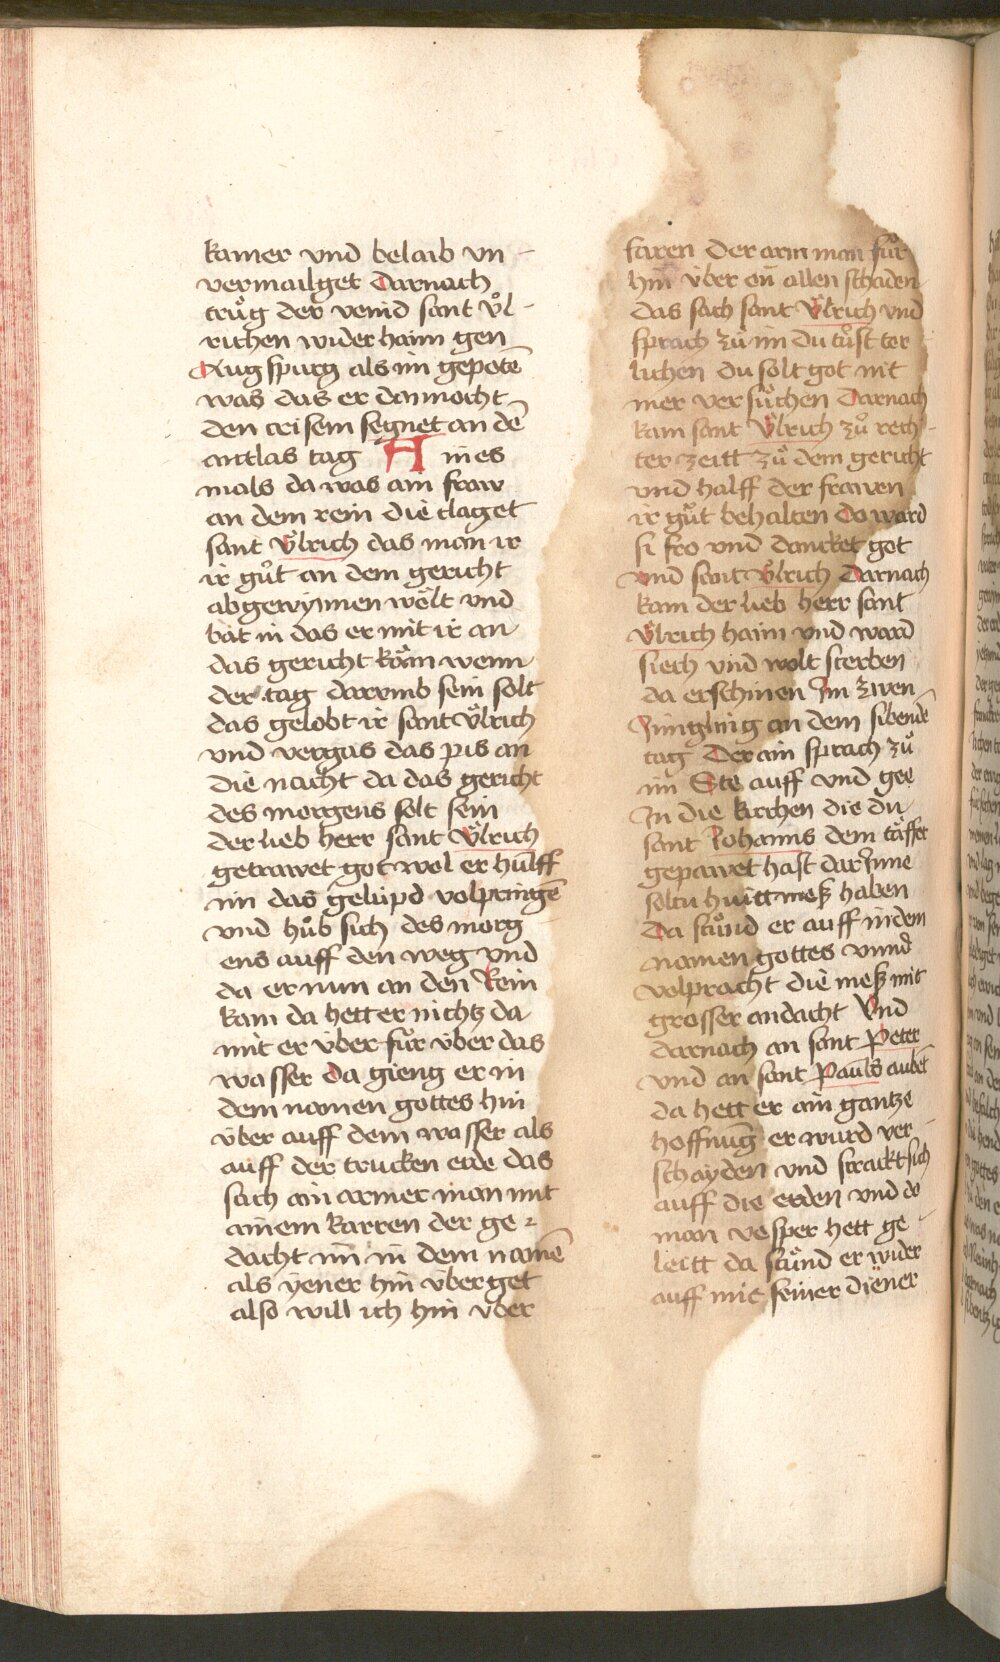 kamer vnd belaib vn-
vermailget Darnach
trůg der veind sant vͦl-
richen wider haim gen
Augspurg als im gepotē
was das er dannocht
den crisem segnet an dē
antlas tag Aines
mals da was ain fraw
an dem rein die claget
sant Vͦlrich das man ir
ir gůt an dem gericht
abgewynnen wolt vnd
bat in das er mit ir an
das gericht kåm wenn
der tag darumb sein solt
das gelobt ir sant Vͦlrich
vnd vergas das pis an
die nacht da das gericht
des morgens solt sein
der lieb herr sant Vͦlrich
getrawet got wol er hulff
im das gelüpd volpringē
vnd hůb sich des morg
ens auff den weg vnd
da er nun an den Rein
kam da hett er nichtz da
mit er über fůr über das
wasser Da gieng er in
dem namen gottes hin
über auff dem wasser als
auff der trucken erde das
sach ain armer man mit
ainem karren der ge-
dacht im in dem namē
als yener hin über get
also will ich hin vber
faren Der arm man fůr
hin vber on allen schaden
das sach sant Vͦlrich vnd
sprach zů im du tůst tor
lichen du solt got nit
mer versůchen Darnach
kam sant Vͦlrich zů rech-
ter zeitt zů dem gericht
vnd halff der frawen
ir gůt behalten Do ward
si fro vnd dancket got
vnd sant Vͦlrich Darnach
kam der lieb herr sant
Vͦlrich haim vnd ward
siech vnd wolt sterben
da erschinen Im zwen
Jüngling an dem sibende
tag Der ain sprach zů
im Ste auff vnd gee
In die kirchen die du
sant Johanns dem tåffer
gepawet hast dar Inne
soltu huitt meß haben
Da stůnd er auff in dem
namen gottes vnnd
volpracht die meß mit
grosser andacht Vnd
darnach an sant Peter
vnd an sant Pauls aubēt
da hett er ain gantze
hoffnung er wurd ver-
schayden vnd strackt sich
auff die erden vnd do
man vesper hett ge-
leitt da stůnd er wider
auff mit seiner diener